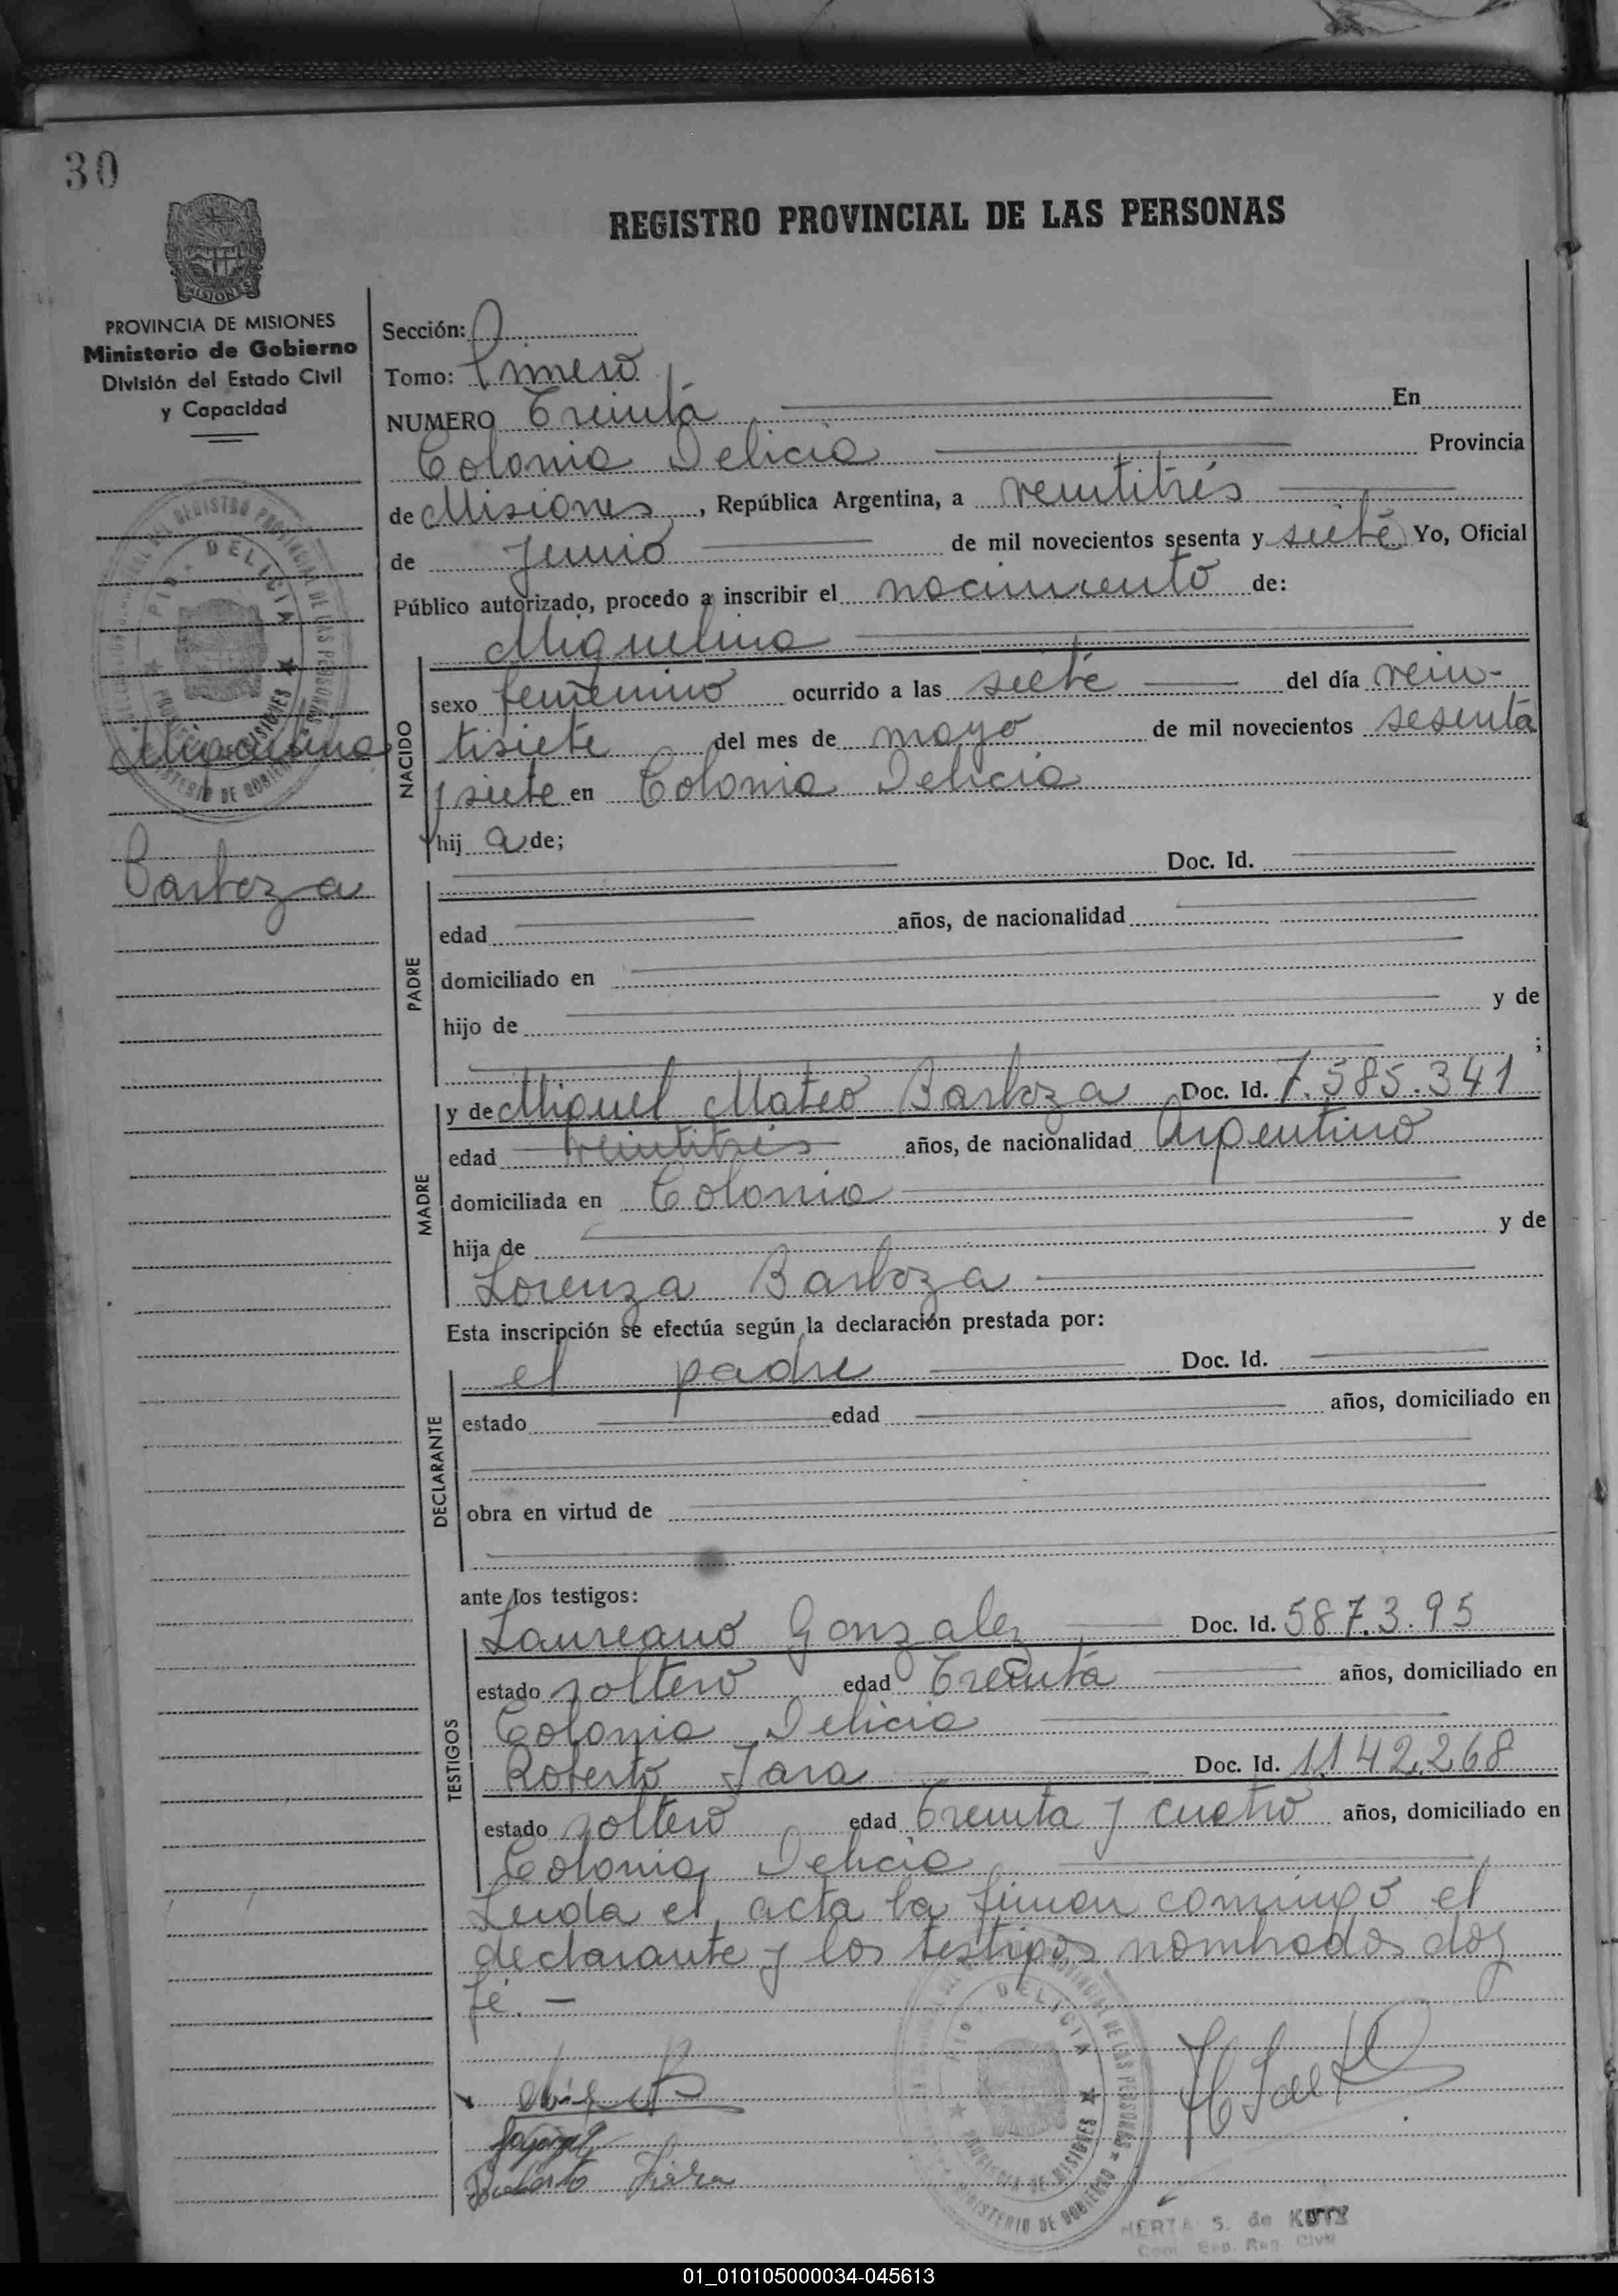 30
REGISTRO PROVINCIAL DE LAS PERSONAS
MISIONES
PROVINCIA DE MISIONES
Ministerio de Gobierno
División del Estado Civil
y Capacidad
Miguelina
Barboza
Sección:
Tomo: Primero
NUMERO Treinta En
Colonia Delicia Provincia
de Misiones, República Argentina, a veintitrés
de Junio de mil novecientos sesenta y siete Yo, Oficial
Público autorizado, procedo a inscribir el nacimiento de:
Miguelina
NACIDO
sexo femenino ocurrido a las siete del día vein-
tisiete del mes de mayo de mil novecientos sesenta
y siete en Colonia Delicia
hij a de;
Doc. Id.
PADRE
edad años, de nacionalidad
domiciliado en
hijo de y de
;
MADRE
y de Miguel Mateo Barboza Doc. Id. 7.585.341
edad veintitrés años, de nacionalidad Argentino
domiciliada en Colonia
hija de y de
Lorenza Barboza
Esta inscripción se efectúa según la declaración prestada por:
el padre Doc. Id.
DECLARANTE
estado edad años, domiciliado en
obra en virtud de
ante los testigos:
TESTIGOS
Laureano Gonzalez Doc. Id. 587.3.95
estado soltero edad Treinta años, domiciliado en
Colonia Delicia
Roberto Jara Doc. Id. 1.142.268
estado soltero edad Treinta y cuatro años, domiciliado en
Colonia Delicia
Leida el acta la firman conmigo el
declarante y los testigos nombrados doy
fé. -
DELICIA
PROVINCIA DE MISIONES
MINISTERIO DE GOBIERNO
HERTA S. de KUTY
01_010105000034-045613